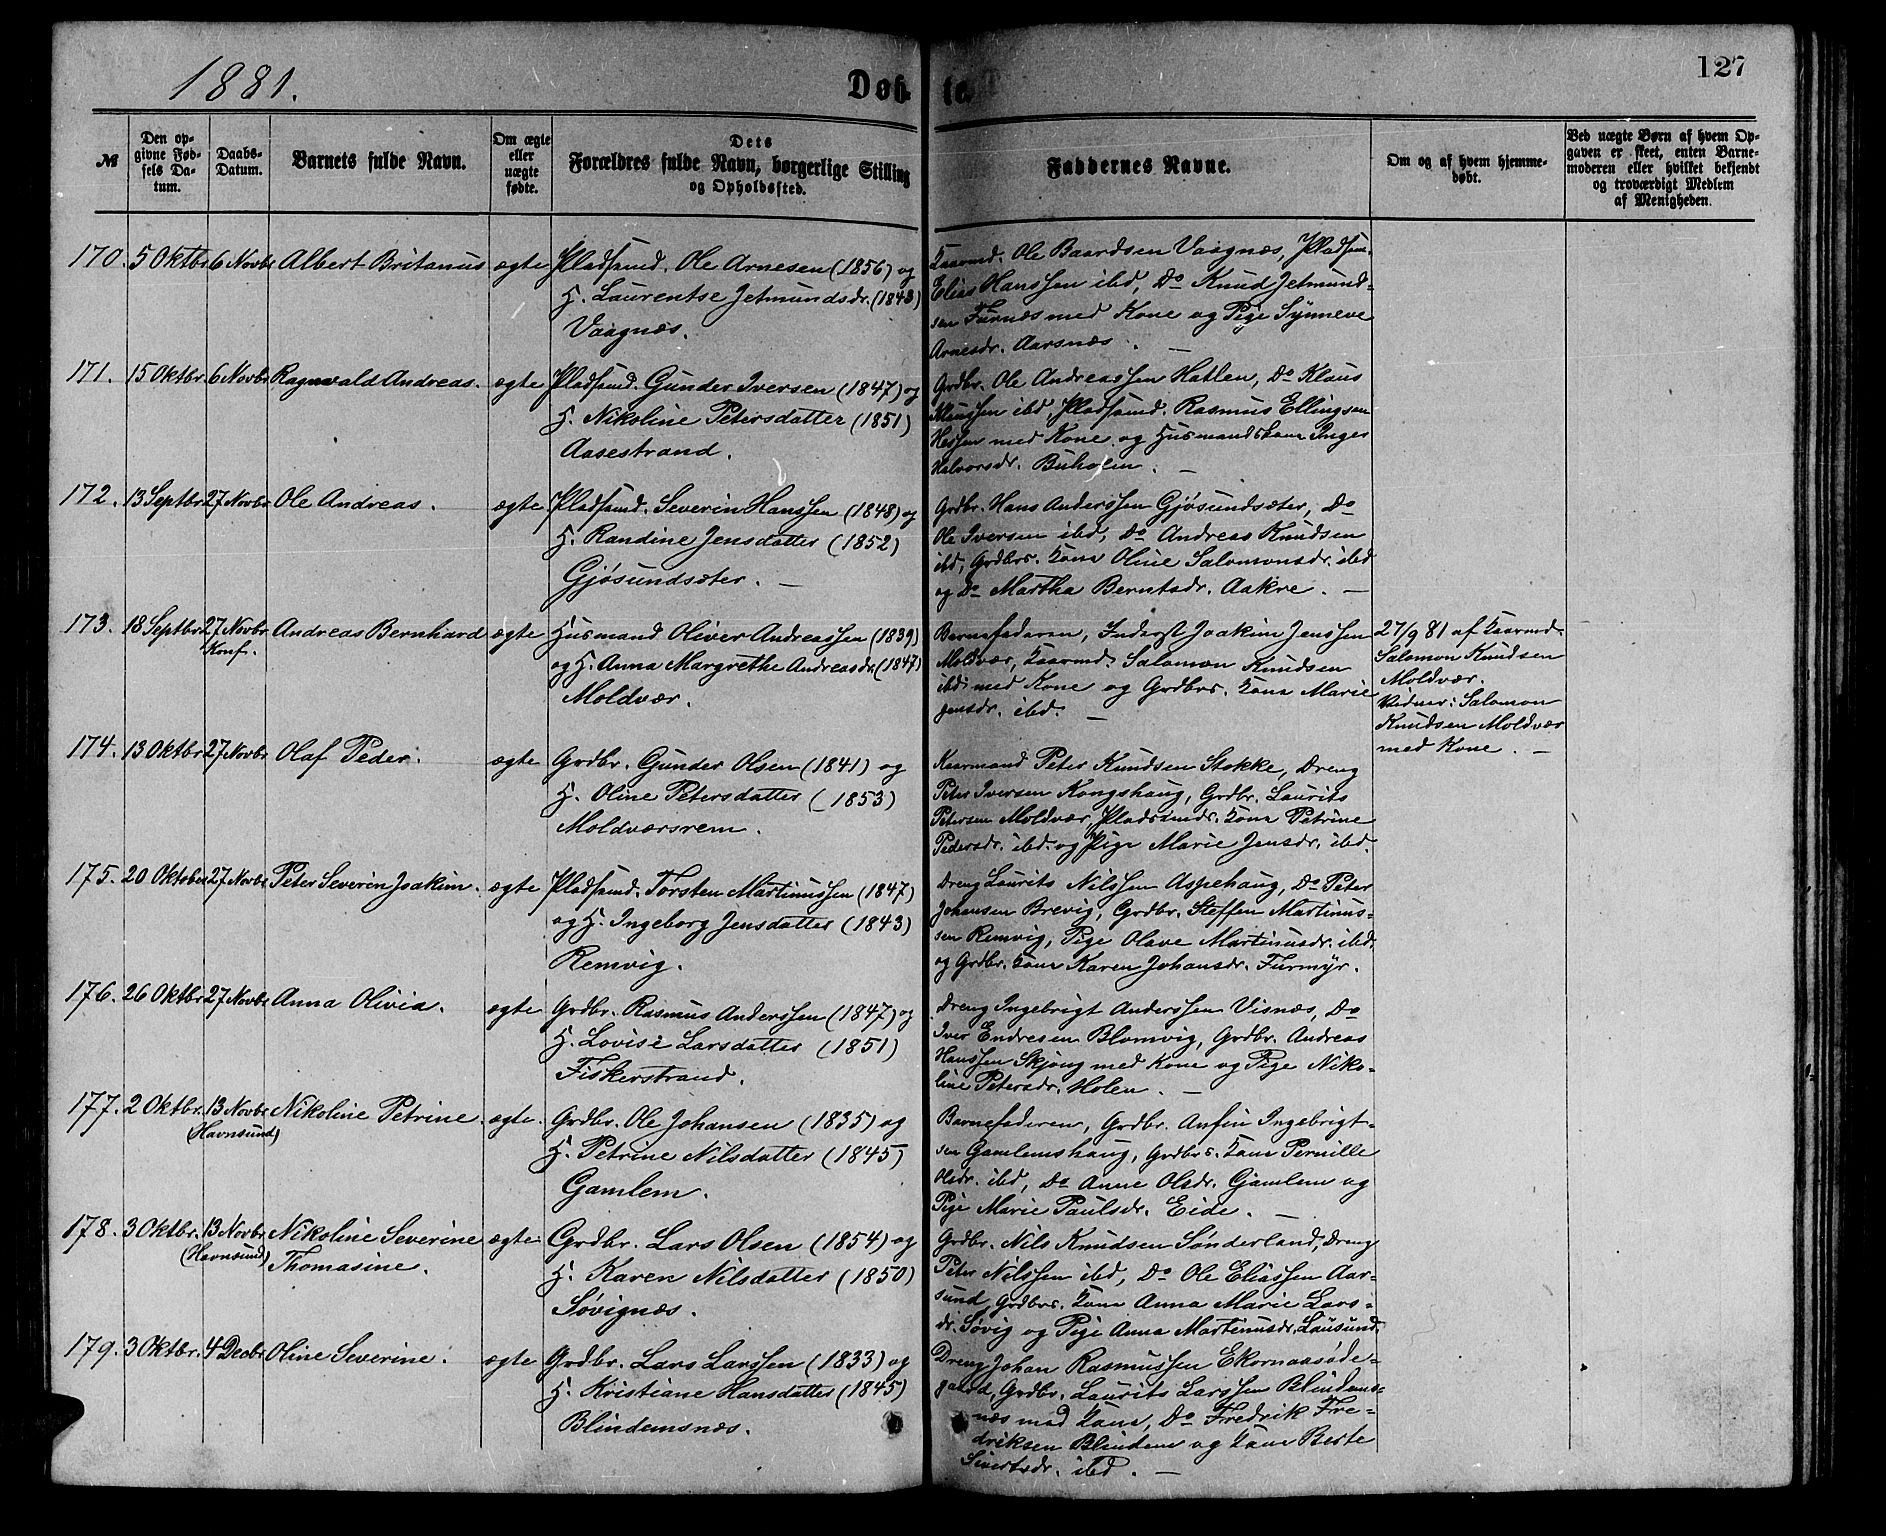 1881.
Døbte.
127
№
Den opgivne Fødsels Datum.
Daabs-Datum.
Barnets fulde Navn.
Om ægte eller uægte fødte.
Dets Forældres fulde Navn, borgerlige Stilling og Opholdssted.
Faddernes Navne.
Om og af hvem hjemmedøbt.
Ved uægte Børn af hvem Opgaven er skeet, enten Barnemoderen eller hvilket bekjendt og troværdigt Medlem af Menigheden.
170. 5 Oktbr 6 Novbr Albert Britanus ægte Pladsmd. Ole Arnesen (1856) og
H. Laurentse Jetmundsdr. (1848)
Vaagnæs.
Kaarmd. Ole Baardsen Vaagnæs, Pladsm.
Elias Hanssen ibd, Do Knud Jetmund-
sen Furnæs med Kone og Pige Synneve
Arnesdr. Aarsnæs. —
171. 15 Oktbr. 6 Novbr Ragnvald Andreas. ægte Pladsmd. Gunder Iversen (1847) og
H. Nikoline Petersdatter (1851)
Aasestrand.
Grdbr. Ole Andreassen Hatlen, Do Klaus
Klaussen ibd, Pladsmd. Rasmus Ellingsen
Hessen med Kone og Husmandskone Inger
Halvorsdr. Buholm. —
172. 13 Septbr 27 Novbr Ole Andreas. ægte Pladsmd. Severin Hanssen (1848) og
H. Randine Jensdatter (1852)
Gjøsundsæter. —
Grdbr. Hans Anderssen Gjøsundsæter, Do
Ole Iversen ibd, Do Andreas Knudsen
ibd, Grdbrs. Kone Oline Salomonsdr. ibd
og Do Martha Berntsdr. Aakre. —
173. 18 Septbr 27 Novbr Andreas Bernhard ægte Husmand Oliver Andreassen (1839)
Konf.
og H. Anna Margrethe Andreasdr. (1847)
Moldvær.
Barnefaderen, Inderst Joakim Jenssen
Moldvær, Kaarmd. Salomon Knudsen
ibd med Kone og Grdbrs. Kone Marie
Jensdr. ibd. —
27/9 81 af Kaarmd.
Salomon Knudsen
Moldvær.
Vidner: Salomon
Knudsen Moldvær
med Kone. —
174. 13 Oktbr 27 Novbr Olaf Peder. ægte Grdbr. Gunder Olsen (1841) og
H. Oline Petersdatter (1853)
Moldværsrem.
Kaarmand Peter Knudsen Stokke, Dreng
Peter Iversen Kongshaug, Grdbr. Laurits
Petersen Moldvær, Pladsmds. Kone Petrine
Pedersdr. ibd. og Pige Marie Jensdr. ibd.
175. 20 Oktober 27 Novbr. Peter Severin Joakim. ægte Pladsmd. Torsten Martinussen (1847)
og H. Ingeborg Jensdatter (1843)
Remvig.
Dreng Laurits Nilssen Aspehaug, Do Peter
Johansen Brevig, Grdbr. Steffen Martinus-
sen Remvig, Pige Olave Martinusdr. ibd.
og Grdbr. Kone Karen Johansdr. Furmyr.
176. 26 Oktbr 27 Novbr Anna Olivia. ægte Grdbr. Rasmus Anderssen (1847) og
H. Lovise Larsdatter (1851)
Fiskerstrand.
Dreng Ingebrigt Anderssen Visnæs, Do
Iver Endresen Blomvig, Grdbr. Andreas
Hanssen Skjong med Kone og Pige Niko-
line Petersdr. Holen. —
177. 2 Oktbr. 13 Novbr Nikoline Petrine. ægte. Grdbr. Ole Johansen (1835) og
(Havnsund)
H. Petrine Nilsdatter (1845)
Gamlem.
Barnefaderen, Grdbr. Anfin Ingebrigt-
sen Gamlemshaug, Grdbrs. Kone Pernille
Olsdr. ibd, Do Anne Olsdr. Gamlem og
Pige Marie Paulsdr. Eide. —
178. 3 Oktbr. 13 Novbr. Nikoline Severine ægte Grdbr. Lars Olsen (1854) og
(Havnsund) Thomasine.
H. Karen Nilsdatter (1850)
Søvignæs.
Grdbr. Nils Knudsen Sønderland, Dreng
Peter Nilssen ibd, Do Ole Eliassen Aar-
sund, Grdbrs. Kone Anna Marie Lars-
dr. Søvig og Pige Anna Martinusdr. Lausund.
179. 3 Oktbr. 4 Decbr Oline Severine. ægte Grdbr. Lars Larssen (1833) og
H. Kristiane Hansdatter (1845)
Blindemsnæs.
Dreng Johan Rasmussen Ekornaasøde-
gaard, Grdbr. Laurits Larssen Blindems-
næs med Kone, Do Fredrik Fre-
driksen Blindem og Kone Berte
Sivertsdr. ibd. —